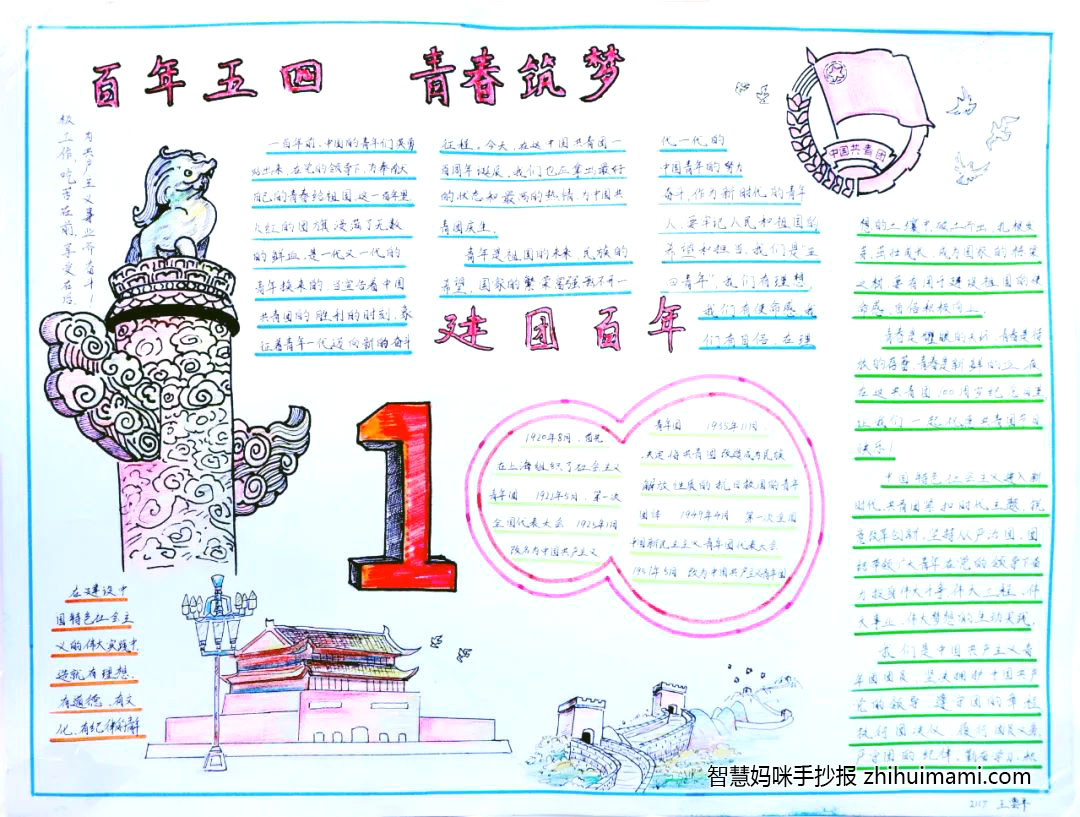 百年五四 青春筑梦
为共产主义事业而奋斗!
级工作,吃苦在前,享受在后
中国共青团
一百年前,中国的青年们英勇
站出来,在党的领导下,为奉献
自己的青春给祖国,这一百年里
火红的团旗浸满了无数
的鲜血,是一代又一代的
青年换来的,当宣告着中国
共青团的胜利的时刻,象
征着青年一代迈向新的奋斗
征程,今天,在这中国共青团一
百周年诞辰,我们也应拿出最好
的状态和最高的热情为中国共
青团庆生。
青年是祖国的未来,民族的
希望,国家的繁荣富强离不开一
代一代的
中国青年的努力
奋斗,作为新时代的青年
人,要牢记人民和祖国的
希望和担当,我们是"五
四青年",我们有理想
我们有使命感,我
们有自信,在理
想的土壤里破土而出,扎根生
芽,茁壮成长,成为国家的栋梁
之材,要有用于建设祖国的使
命感,自信积极向上。
在这共青团100周岁
让我们一起祝愿共青团节日
快乐!
中国特色社会主义进入新
时代,共青团紧扣时代主题,锐
意改革创新,坚持从严治团,团
结带领广大青年在党的领导下奋
力投身伟大斗争、伟大工程、伟
大事业、伟大梦想的生动实践。
我们是中国共产主义青
年团团员,坚决拥护中国共产
党的领导,遵守团的章程,
执行团决议,履行团员义务,
严守团的纪律,勤奋学习,积
建团百年
1
1920年8月,首先
在上海组织了社会主义
青年团 1922年5月,第一次
全国代表大会 1925年1月
改名为中国共产主义
青年团 1935年11月
决定将共青团改造成为民族
解放性质的抗日救国的青年
团体 1949年4月 第一次全国
中国新民主主义青年团代表大会
1957年5月 改为中国共产主义青年团
在建设中
国特色社会主
义的伟大实践中,
造就有理想、
有道德、有文
化、有纪律的新
智慧妈咪手抄报 zhihuimami.com